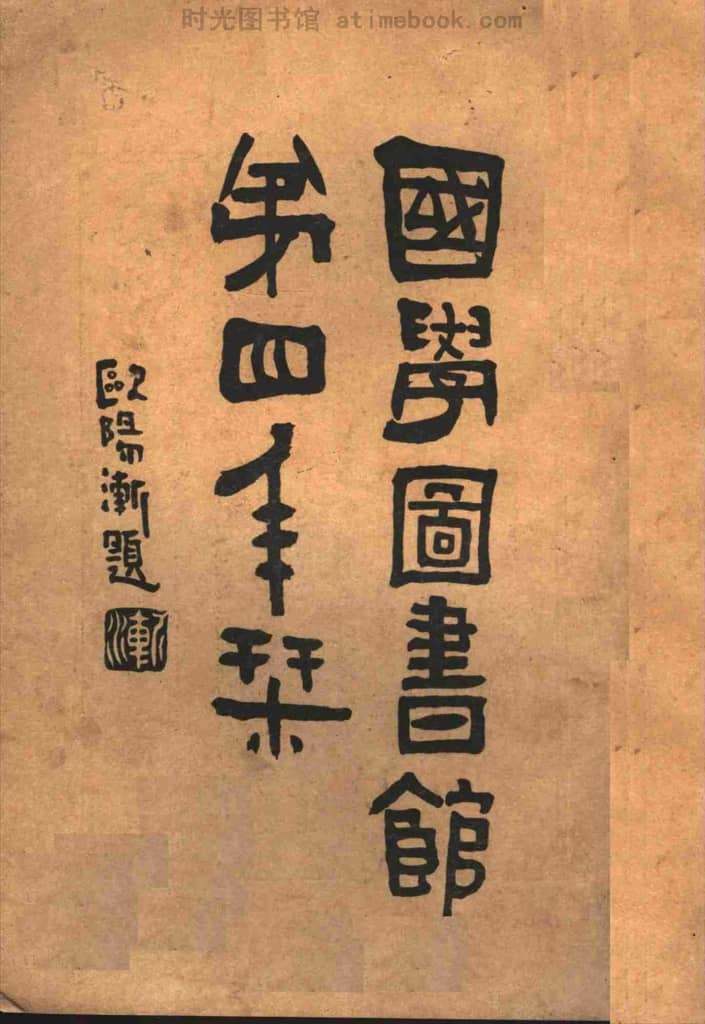 时光图书馆 atimebook.com
國學圖書館
第四年栞
歐陽漸題
漸